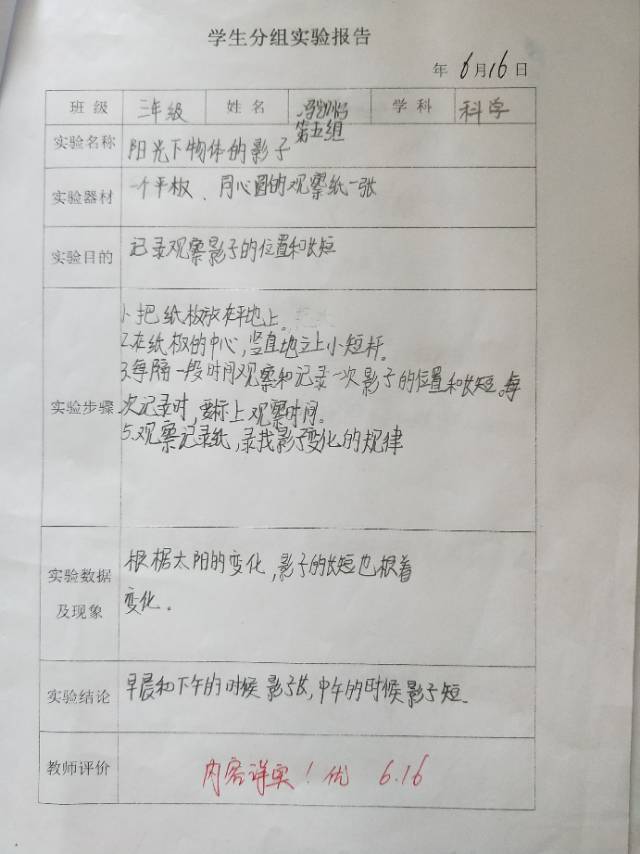 学生分组实验报告
年 6月16日
班级 三年级 姓名 第五组 学科 科学
实验名称 阳光下物体的影子
实验器材 一个平板、同心圆的观察纸一张
实验目的 记录观察影子的位置和长短
实验步骤
1. 把纸板放在平地上。
2.在纸板的中心,竖直地立上小短杆。
3.每隔一段时间观察和记录一次影子的位置和长短。每
次记录时,要标上观察时间。
5.观察记录纸,录找影子变化的规律
实验数据
及现象
根椐太阳的变化,影子的长短也根着
变化。
实验结论 早晨和下午的时候影子长,中午的时候影子短.
教师评价 内容详实!优 6.16